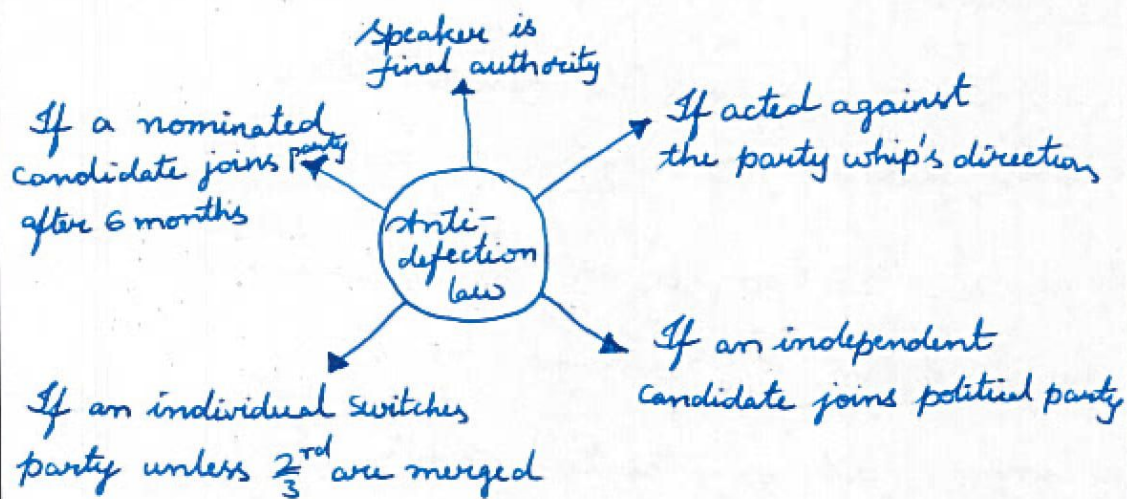 Speaker is
final authority
If a nominated
candidate joins party
after 6 months
If acted against
the party whip's direction
Anti-
defection
law
If an independent
candidate joins political party
If an individual switches
party unless 2/3rd are merged